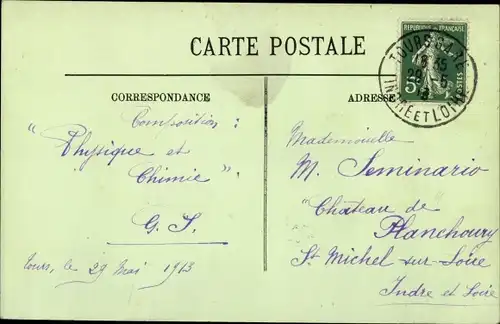 CARTE POSTALE
CORRESPONDANCE
ADRESSE
REPUBLIQUE FRANÇAISE
POSTES
TOURS GARE
INDRE ET LOIRE
Composition :
"Physique et
Chimie"
Tours, le 29 Mai 1913
Mademoiselle
M. Seminario
Château de
Planchoury
St Michel sur-Loire
Indre et Loire